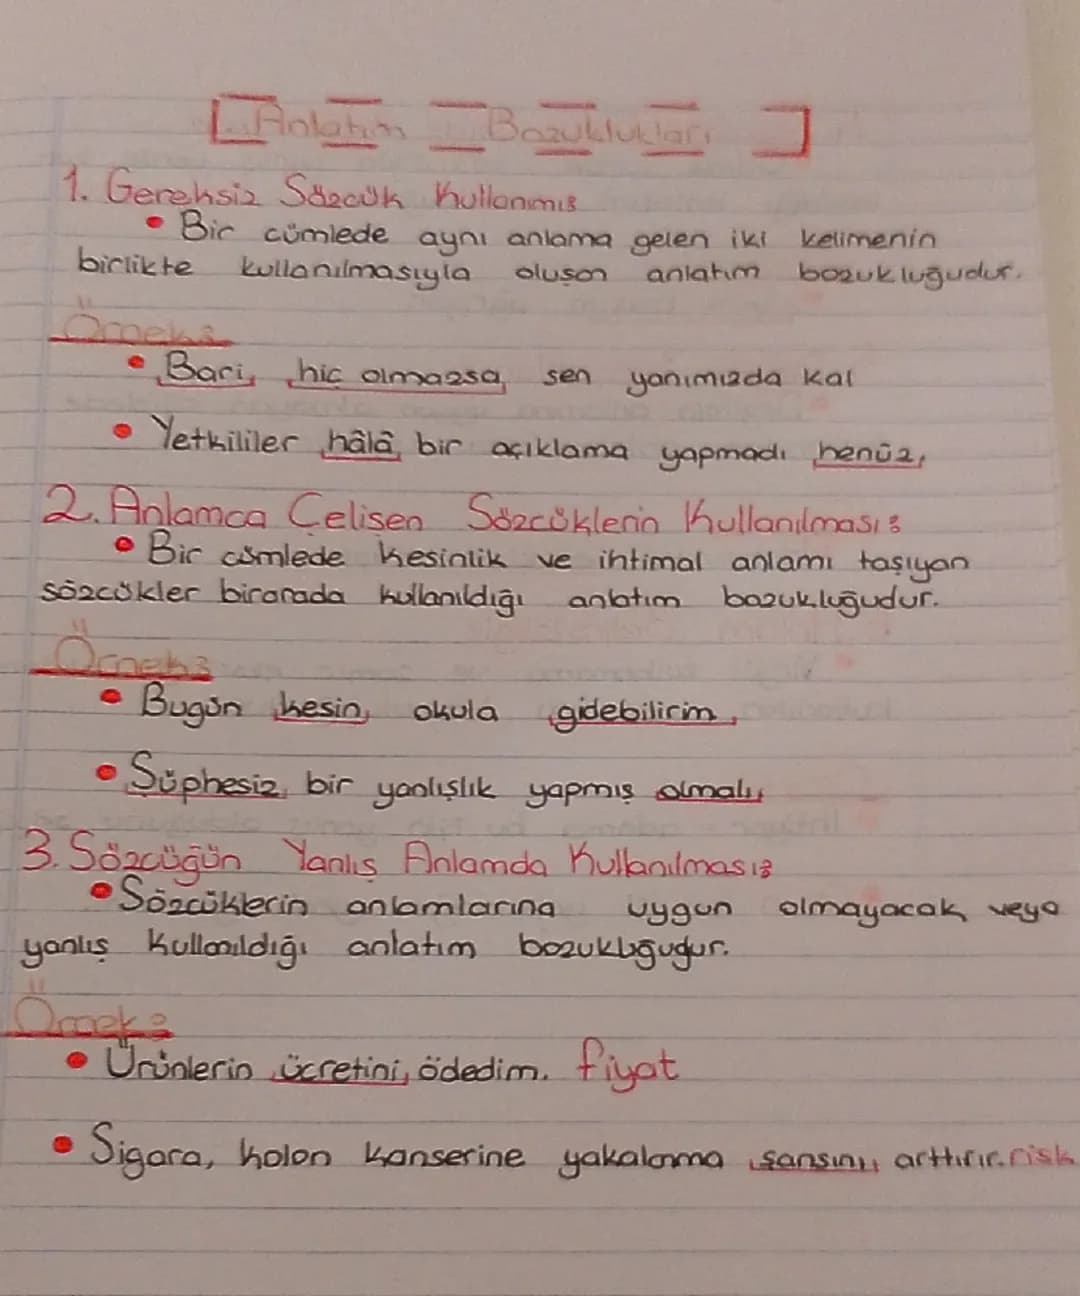 Anlatım Bozuklukları
1. Gereksiz Sözcük Kullanımı:
• Bir cümlede aynı anlama gelen iki kelimenin
birlikte kullanılmasıyla oluşan anlatım bozukluğudur.
Örnek:
• Bari, hiç olmazsa, sen yanımızda kal
• Yetkililer hâlâ bir açıklama yapmadı henüz,
2. Anlamca Çelişen Sözcüklerin Kullanılması:
• Bir cümlede kesinlik ve ihtimal anlamı taşıyan
sözcükler birarada kullanıldığı anlatım bozukluğudur.
Örnek:
• Bugün kesin, okula gidebilirim,
• Şüphesiz, bir yanlışlık yapmış olmalı,
3. Sözcüğün Yanlış Anlamda Kullanılması:
• Sözcüklerin anlamlarına uygun olmayacak veya
yanlış kullanıldığı anlatım bozukluğudur.
Örnek:
• Ürünlerin ücretini, ödedim. fiyat
• Sigara, kolon kanserine yakalanma şansını, arttırır. risk